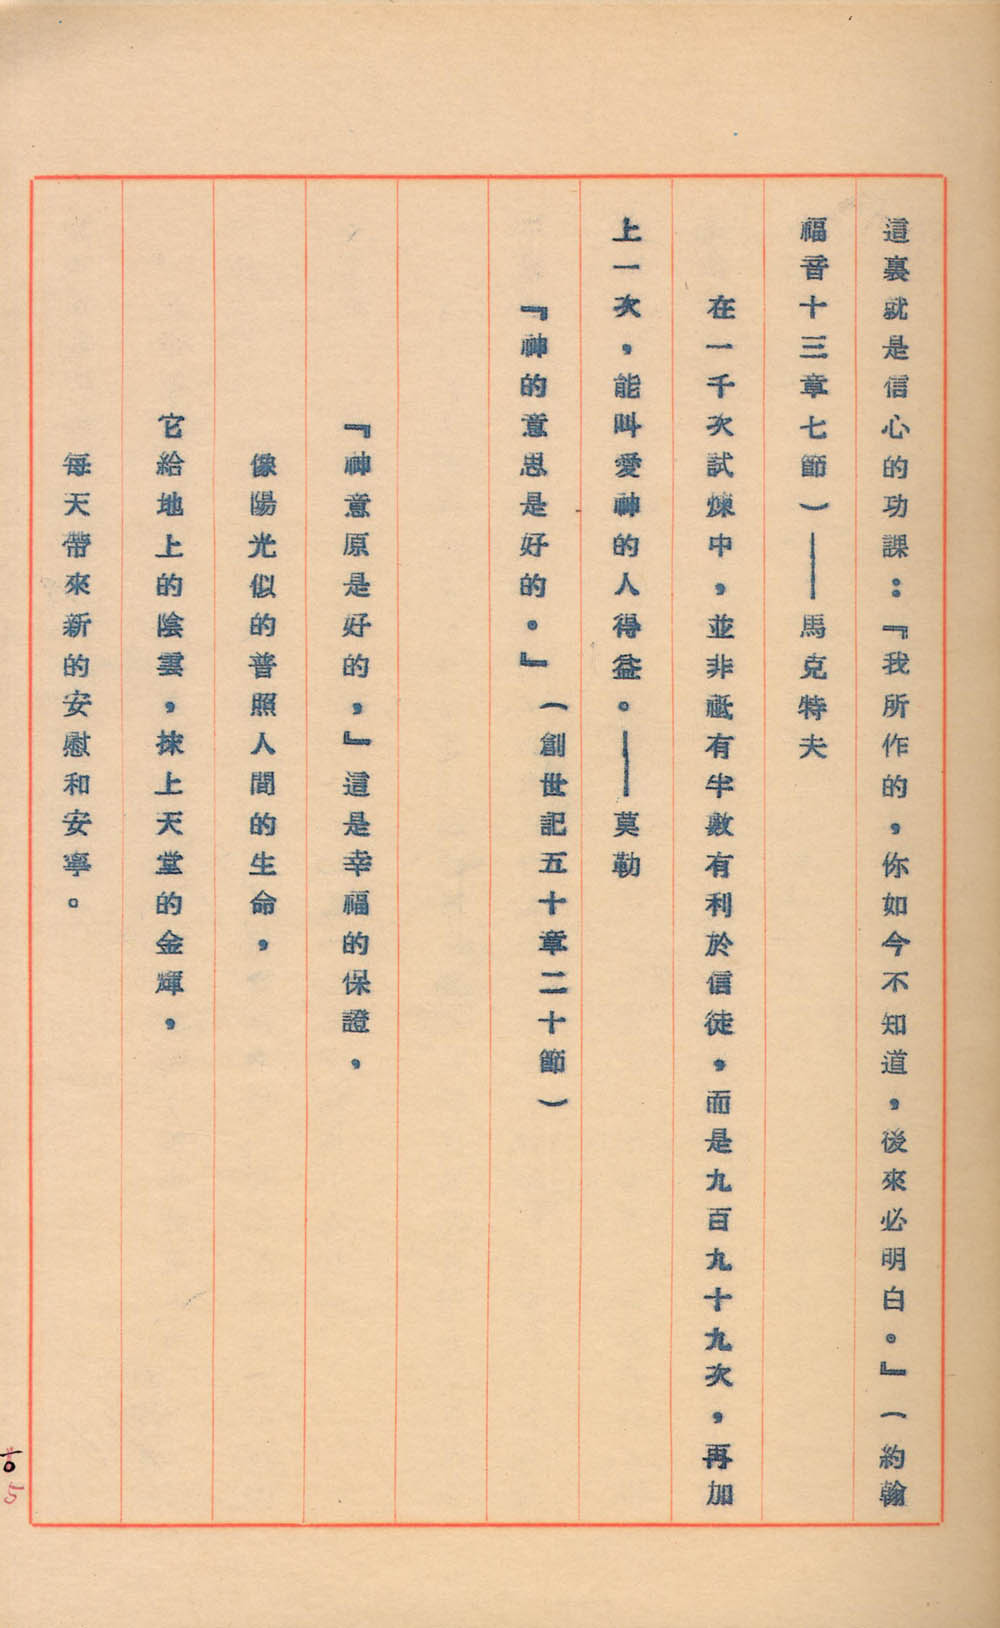 這裏就是信心的功課：『我所作的，你如今不知道，後來必明白。』（約翰
福音十三章七節）——馬克特夫
在一千次試煉中，並非祗有半數有利於信徒，而是九百九十九次，再加
上一次，能叫愛神的人得益。——莫勒
『神的意思是好的。』（創世記五十章二十節）
『神意原是好的，』這是幸福的保證，
像陽光似的普照人間的生命，
它給地上的陰雲，抹上天堂的金輝，
每天帶來新的安慰和安寧。
5